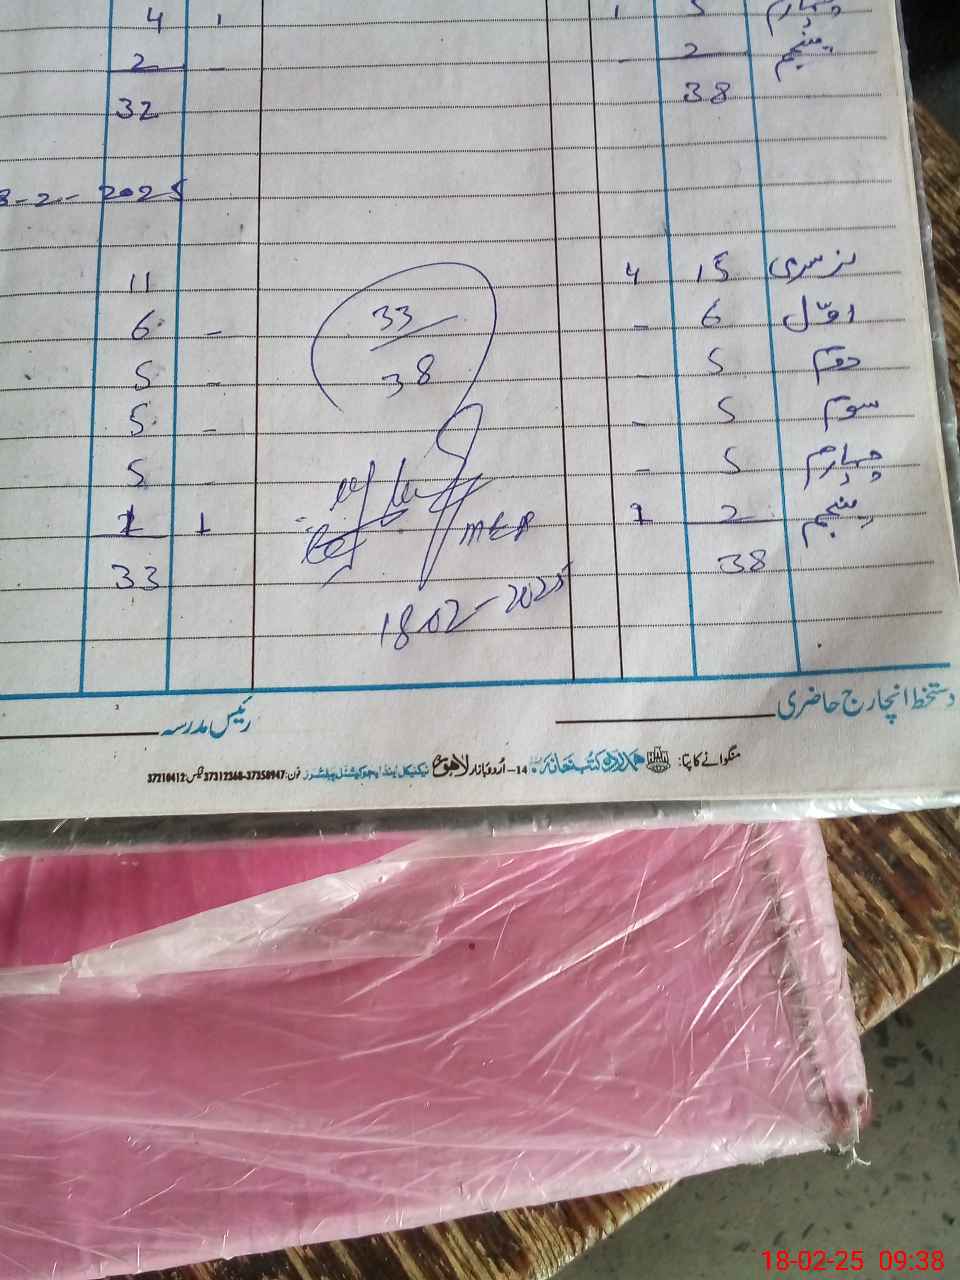 چہارم 5 1 1 4
پنجم 2 - - 2
38 32
-2-2025
نرسری 15 4 11
اوّل 6 - - 6
دوّم 5 - 5
سوّم 5 - - 5
چہارم 5 - - 5
پنجم 2 1 1 1
38 33
33
38
MEA
18-02-2025
دستخط انچارج حاضری رئیس مدرسہ
منگوانے کا پتا: ہمدرد کتب خانہ 14-اُردو بازار لاہور ٹیکنیکل اینڈ ایجوکیشنل پبلشرز فون: 37358947-37312368 فیکس: 37210412
18-02-25 09:38